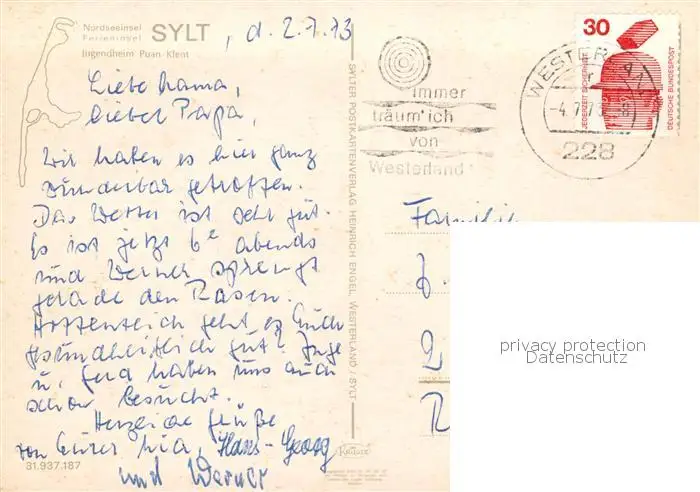 Nordseeinsel
Ferieninsel SYLT, d. 2.7.73
Jugendheim Puan-Klent
Liebe Mama,
lieber Papa,
Wir haben es hier ganz
wunderbar getroffen.
Das Wetter ist sehr gut.
Es ist jetzt 6e abends
und Werner sprengt
gerade den Rasen.
Hoffentlich geht es Euch
gesundheitlich gut? Inge
u. Gerd haben uns auch
schon besucht.
Herzliche Grüße
von Eurer Mia, Hans-Georg
und Werner
31.937.187
SYLTER POSTKARTENVERLAG HEINRICH ENGEL, WESTERLAND / SYLT
Krüger
immer
träum' ich
von
Westerland
WESTERLAND
-4.7.73
228
30
JEDERZEIT SICHERHEIT
DEUTSCHE BUNDESPOST
Familie
privacy protection
Datenschutz